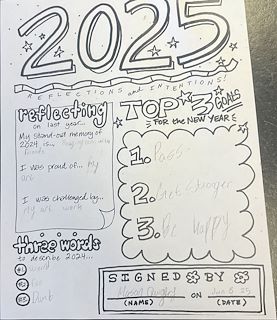 2025
REFLECTIONS and INTENTIONS!
reflecting
on last year...
My stand-out memory of
2024 is...
friends
I was proud of... my
art
I was challenged by...
my art work
three words
to describe 2024...
#1 weird
#2 Fun
#3 Dumb
TOP 3 GOALS
FOR the NEW YEAR
1. Pass
2. Get Stronger
3. Be Happy
SIGNED BY
ON Jan 6 25
(NAME) (DATE)